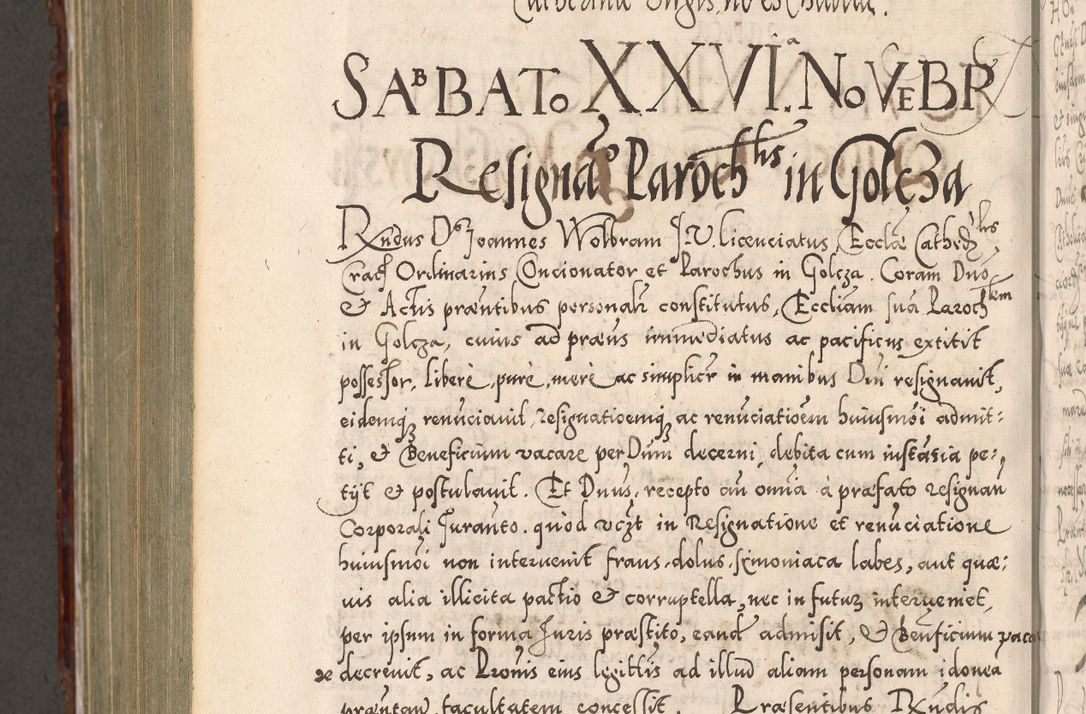 SABBATo XXVI.a NoVEBR
Resignã Parochhis in Golcza
Rndus Ds Joannes Wolbram J.V. licenciatus, Ecclæ Cathedlis
Crac Ordinarius Concionator et Parochus in Golcza. Coram Dno
& Actis præntibus personalr constitutus, Eccliam suã Parochlem
in Golcza, cuius ad præns immediatus ac pacificus extitit
possessor, libere, pure, mere ac simplicr in manibus Dni resignauit,
eidemq renũciauit, resignationemq ac renũciatioem huiusmõi admit:
ti, & Beneficium vacare per Dnm decerni, debita cum instãtia pe:
tijt & postulauit. Et Dnus, recepto an omia à præfato resignan
Corporali Juranto, quòd vczt in Resignatione et renũciatione
huiusmõi non interuenit fraus, dolus, simoniaca labes, aut quæ:
uis alia illicita pactio & corruptella, nec in futurũ interueniet,
per ipsum in forma Juris præstito, eand admisit, & Beneficium vaca
re decreuit, ac Pronis eius legittis ad illud aliam personam idonea
præntan facultatem concessit. Præsentibus Rndis